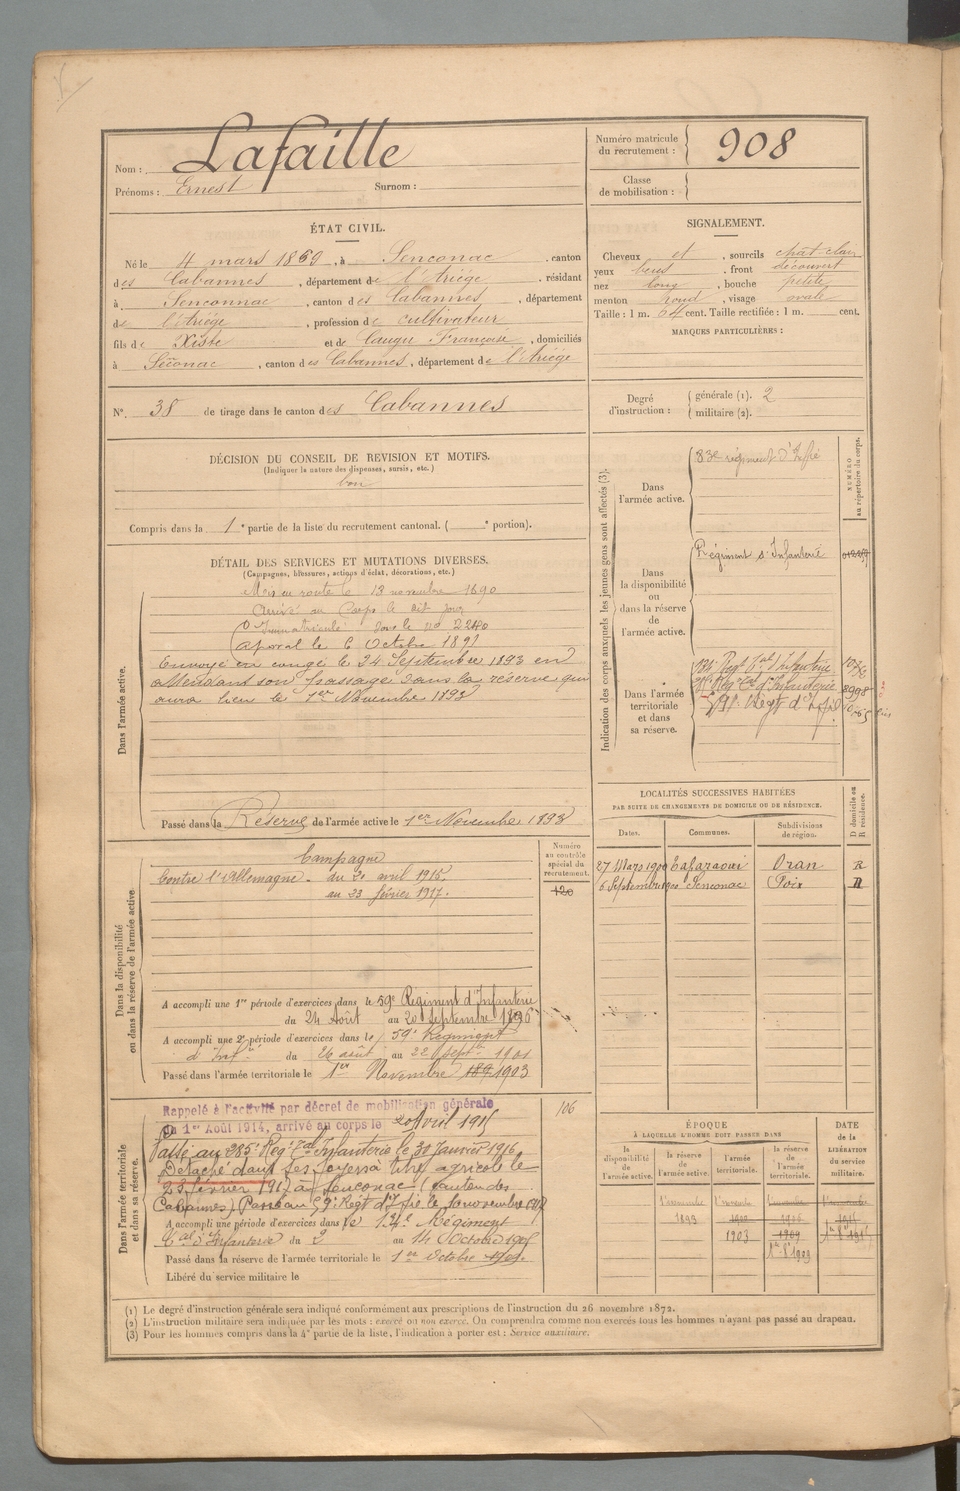 Nom : Lafaille
Prénoms : Ernest Surnom :
Numéro matricule du recrutement : 908
Classe de mobilisation :
ÉTAT CIVIL.
Né le 4 mars 1869, à Senconac, canton
des Cabannes, département de l'Ariége, résidant
à Senconnac, canton des Cabannes, département
de l'Ariége, profession de cultivateur
fils de Xiste et de Caugu Françoise, domiciliés
à Señonac, canton des Cabannes, département de l'Ariége
SIGNALEMENT.
Cheveux et, sourcils chat-clair
yeux bleus, front découvert
nez long, bouche petite
menton rond, visage ovale
Taille : 1 m. 64 cent. Taille rectifiée : 1 m. cent.
MARQUES PARTICULIÈRES :
N° 38 de tirage dans le canton des Cabannes
Degré d'instruction : générale (1). 2
militaire (2).
DÉCISION DU CONSEIL DE REVISION ET MOTIFS.
(Indiquer la nature des dispenses, sursis, etc.)
bon
Compris dans la 1e partie de la liste du recrutement cantonal. ( e portion).
DÉTAIL DES SERVICES ET MUTATIONS DIVERSES.
(Campagnes, blessures, actions d'éclat, décorations, etc.)
Dans l'armée active.
Mis en route le 13 novembre 1890
Arrivé au Corps le dit jour
Immatriculé sous le no 2240
Caporal le 6 Octobre 1891
Envoyé en congé le 24 Septembre 1893 en
attendant son passage dans la réserve qui
aura lieu le 1er Novembre 1893
Passé dans la Réserve de l'armée active le 1er Novembre 1893
Indication des corps auxquels les jeunes gens sont affectés (3).
NUMÉRO au répertoire du corps.
Dans l'armée active.
83e régiment d'Infie
Dans la disponibilité ou dans la réserve de l'armée active.
Régiment d'Infanterie
Dans l'armée territoriale et dans sa réserve.
134e Regt tal d'Infanterie
Regt tal d'Infanterie 8998
59e Régt d'Infie
LOCALITÉS SUCCESSIVES HABITÉES
PAR SUITE DE CHANGEMENTS DE DOMICILE OU DE RÉSIDENCE.
Dates. Communes. Subdivisions de région. D domicile ou R résidence.
27 Mars 1900 Tafaraoui Oran R
6 Septembre 1900 Senconac Foix R
Dans la disponibilité ou dans la réserve de l'armée active.
Numéro au contrôle spécial du recrutement.
120
Campagne
Contre l'Allemagne. du 20 avril 1915
au 23 février 1917.
A accompli une 1re période d'exercices dans le 59e Régiment d'Infanterie
du 24 Août au 20 Septembre 1896
A accompli une 2e période d'exercices dans le 59e Régiment
d'Infie du 26 août au 22 Septbre 1901
Passé dans l'armée territoriale le 1er Novembre 189 1903
Dans l'armée territoriale et dans sa réserve.
106
Rappelé à l'activité par décret de mobilisation générale
du 1er Août 1914, arrivé au corps le 20 Avril 1915
Passé au 285e Regt tal d'Infanterie le 30 Janvier 1916
Détaché dans ses foyers à titre agricole le
23 février 1917 à Senconac (canton des
Cabannes). Passé au 59e Régt d'Infie le 10 novembre 1917
A accompli une période d'exercices dans le 134e Régiment
tal d'Infanterie du 2 au 14 Octobre 1905
Passé dans la réserve de l'armée territoriale le 1er Octobre 1909.
Libéré du service militaire le
ÉPOQUE
À LAQUELLE L'HOMME DOIT PASSER DANS
la disponibilité de l'armée active. la réserve de l'armée active. l'armée territoriale. la réserve de l'armée territoriale.
DATE de la LIBÉRATION du service militaire.
1er novembre 1893
1903
1909
(1) Le degré d'instruction générale sera indiqué conformément aux prescriptions de l'instruction du 26 novembre 1872.
(2) L'instruction militaire sera indiquée par les mots : exercé ou non exercé. On comprendra comme non exercés tous les hommes n'ayant pas passé au drapeau.
(3) Pour les hommes compris dans la 4e partie de la liste, l'indication à porter est : Service auxiliaire.